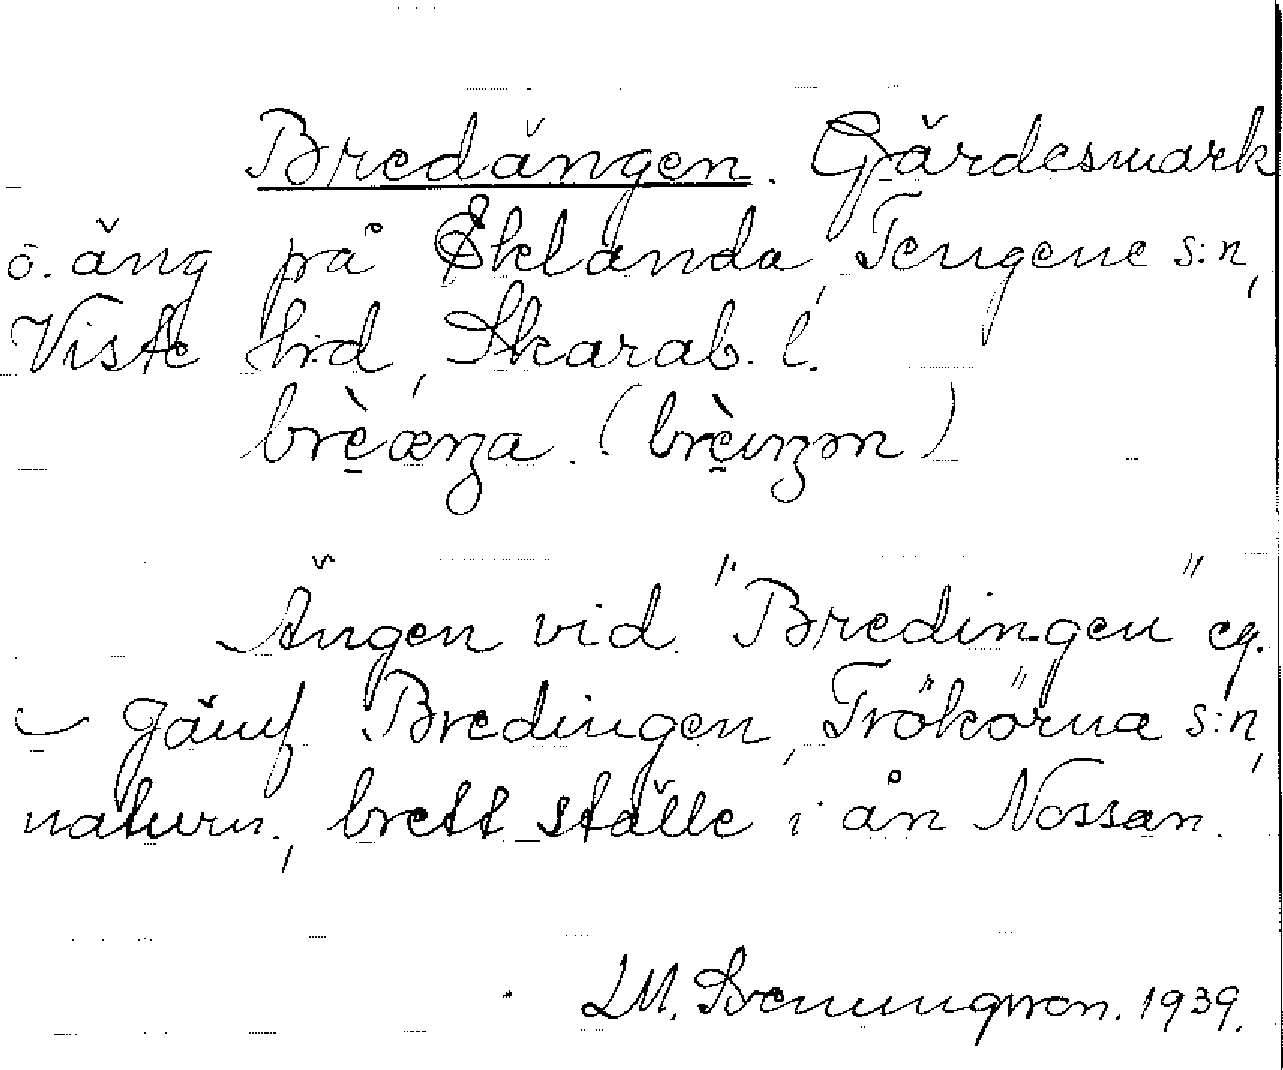 Bredängen. Gärdesmark
o. äng på Eklanda, Tengene s:n,
Viste hrd, Skarab. l.
brèæŋa. (brèıŋən)
Ängen vid "Bredingen" eg.
– Jämf. Bredingen, Trökörna s:n,
naturn., brett ställe i ån Nossan.
LM. Svenungsson. 1939.